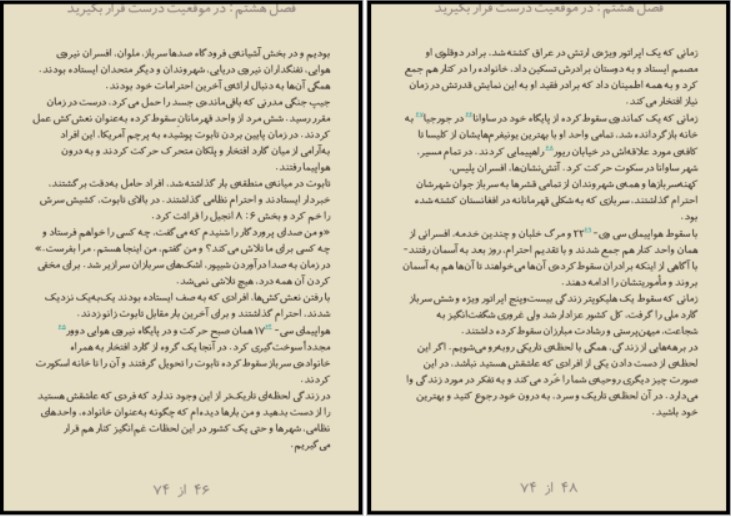 فصل هشتم : در موقعیت درست قرار بگیرید
بودیم و در بخش آشیانه‌ی فرودگاه صدها سرباز، ملوان، افسران نیروی
هوایی، تفنگداران نیروی دریایی، شهروندان و دیگر متحدان ایستاده بودند.
همگی آن‌ها به دنبال ارائه‌ی آخرین احترامات خود بودند.
جیپ جنگی مدرنی که باقی‌مانده‌ی جسد را حمل می‌کرد، درست در زمان
مقرر رسید. شش مرد از واحد قهرمانان سقوط کرده به‌عنوان نعش‌کش عمل
کردند. در زمان پایین بردن تابوت پوشیده به پرچم آمریکا، این افراد
به‌آرامی از میان گارد افتخار و پلکان متحرک حرکت کردند و به درون
هواپیما رفتند.
تابوت در میانه‌ی منطقه‌ی بار گذاشته شد. افراد حامل به‌دقت برگشتند،
خبردار ایستادند و احترام نظامی گذاشتند. در بالای تابوت، کشیش سرش
را خم کرد و بخش ۶: ۸ انجیل را قرائت کرد.
«و من صدای پروردگار را شنیدم که می‌گفت، چه کسی را خواهم فرستاد و
چه کسی برای ما تلاش می‌کند؟ و من گفتم، من اینجا هستم. مرا بفرست.»
در زمان به صدا درآوردن شیپور، اشک‌های سربازان سرازیر شد. برای مخفی
کردن آن همه درد، هیچ تلاشی نمی‌شد.
با رفتن نعش‌کش‌ها، افرادی که به صف ایستاده بودند یک‌به‌یک نزدیک
شدند، احترام گذاشتند و برای آخرین بار مقابل تابوت زانو زدند.
هواپیمای سی- ۱۷ همان صبح حرکت و در پایگاه نیروی هوایی دوور
مجدداً سوخت‌گیری کرد. در آنجا یک گروه از گارد افتخار به همراه
خانواده‌ی سرباز سقوط کرده تابوت را تحویل گرفتند و آن را تا خانه اسکورت
کردند.
در زندگی لحظه‌ای تاریک‌تر از این وجود ندارد که فردی که عاشقش هستید
را از دست بدهید و من بارها دیده‌ام که چگونه به‌عنوان خانواده، واحدهای
نظامی، شهرها و حتی یک کشور در این لحظات غم‌انگیز کنار هم قرار
می‌گیریم.
۴۶ از ۷۴
فصل هشتم : در موقعیت درست قرار بگیرید
زمانی که یک اپراتور ویژه‌ی ارتش در عراق کشته شد، برادر دوقلوی او
مصمم ایستاد و به دوستان برادرش تسکین داد، خانواده را در کنار هم جمع
کرد و به همه اطمینان داد که برادر فقید او به این نمایش قدرتش در زمان
نیاز افتخار می‌کند.
زمانی که یک کماندوی سقوط کرده از پایگاه خود در ساوانا در جورجیا به
خانه بازگردانده شد، تمامی واحد او با بهترین یونیفرم‌هایشان از کلیسا تا
کافه‌ی مورد علاقه‌اش در خیابان ریور راهپیمایی کردند. در تمام مسیر،
شهر ساوانا در سکوت حرکت کرد. آتش‌نشان‌ها، افسران پلیس،
کهنه‌سربازها و همه‌ی شهروندان از تمامی قشرها به سرباز جوان شهرشان
احترام گذاشتند، سربازی که به شکلی قهرمانانه در افغانستان کشته شده
بود.
با سقوط هواپیمای سی وی- ۲۲ و مرگ خلبان و چندین خدمه، افسرانی از
همان واحد کنار هم جمع شدند و با تقدیم احترام، روز بعد به آسمان رفتند-
با آگاهی از اینکه برادران سقوط کرده‌ی آن‌ها می‌خواهند تا آن‌ها هم به آسمان
بروند و مأموریتشان را ادامه دهند.
زمانی که سقوط یک هلیکوپتر زندگی بیست‌وپنج اپراتور ویژه و شش سرباز
گارد ملی را گرفت، کل کشور عزادار شد ولی غروری شگفت‌انگیز به
شجاعت، میهن‌پرستی و رشادت مبارزان سقوط کرده داشتند.
در برهه‌هایی از زندگی، همگی با لحظه‌ی تاریکی روبه‌رو می‌شویم. اگر این
لحظه‌ی از دست دادن یکی از افرادی که عاشقش هستید نباشد، در این
صورت چیز دیگری روحیه‌ی شما را خرد می‌کند و به تفکر در مورد زندگی وا
می‌دارد. در آن لحظه‌ی تاریک و سرد، به درون خود رجوع کنید و بهترین
خود باشید.
۴۸ از ۷۴